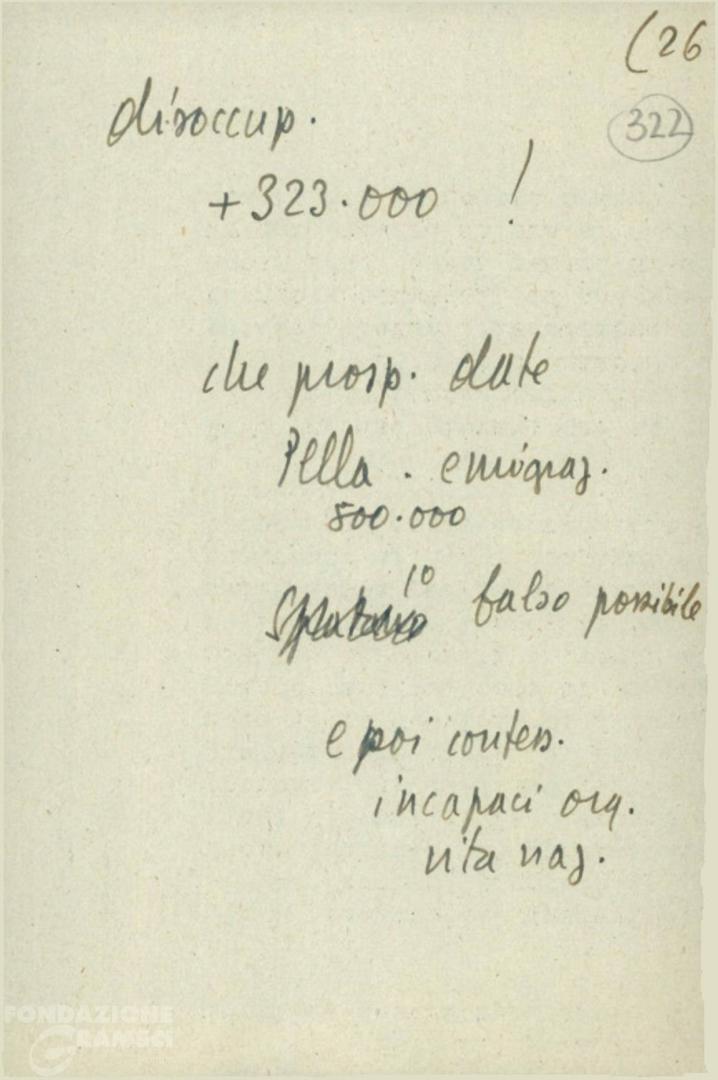 (26
322
disoccup.
+323.000 !
che prosp. date
Pella . emigraz.
800.000
1º falso possibile
e poi contess.
incapaci org.
vita naz.
FONDAZIONE
GRAMSCI